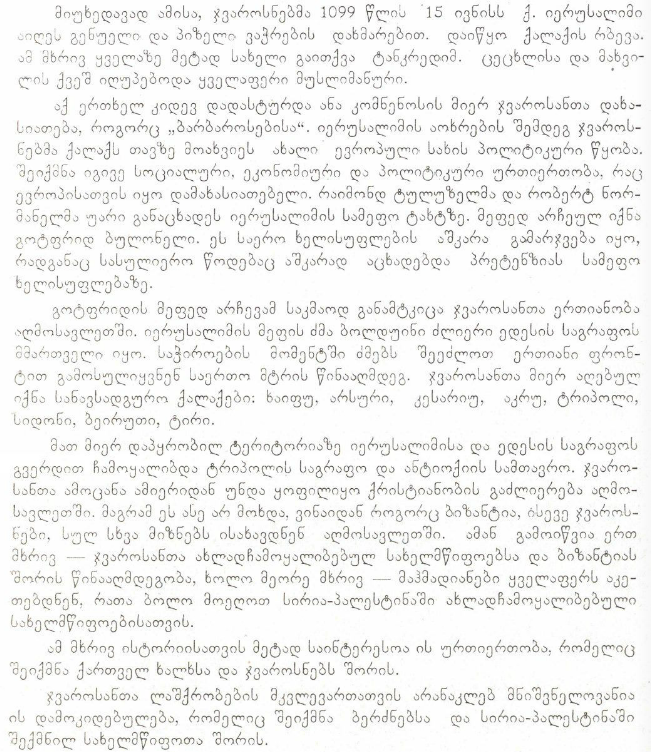 მიუხედავად ამისა, ჯვაროსნებმა 1099 წლის 15 ივნისს ქ. იერუსალიმი
აიღეს გენუელი და პიზელი ვაჭრების დახმარებით. დაიწყო ქალაქის რბევა.
ამ მხრივ ყველაზე მეტად სახელი გაითქვა ტანკრედიმ. ცეცხლისა და მახვი-
ლის ქვეშ იღუპებოდა ყველაფერი მუსლიმანური.
აქ ერთხელ კიდევ დადასტურდა ანა კომნენოსის მიერ ჯვაროსანთა დახა-
სიათება, როგორც „ბარბაროსებისა“. იერუსალიმის აოხრების შემდეგ ჯვაროს-
ნებმა ქალაქს თავზე მოახვიეს ახალი ევროპული სახის პოლიტიკური წყობა.
შეიქმნა იგივე სოციალური, ეკონომიური და პოლიტიკური ურთიერთობა, რაც
ევროპისათვის იყო დამახასიათებელი. რაიმონდ ტულუზელმა და რობერტ ნორ-
მანელმა უარი განაცხადეს იერუსალიმის სამეფო ტახტზე. მეფედ არჩეულ იქნა
გოტფრიდ ბულონელი. ეს საერო ხელისუფლების აშკარა გამარჯვება იყო,
რადგანაც სასულიერო წოდებაც აშკარად აცხადებდა პრეტენზიას სამეფო
ხელისუფლებაზე.
გოტფრიდის მეფედ არჩევამ საკმაოდ განამტკიცა ჯვაროსანთა ერთიანობა
აღმოსავლეთში. იერუსალიმის მეფის ძმა ბოლდუინი ძლიერი ედესის საგრაფოს
მმართველი იყო. საჭიროების მომენტში ძმებს შეეძლოთ ერთიანი ფრონ-
ტით გამოსულიყვნენ საერთო მტრის წინააღმდეგ. ჯვაროსანთა მიერ აღებულ
იქნა სანავსადგურო ქალაქები: ხაიფუ, არსური, კესარიუ, აკრუ, ტრიპოლი,
სიდონი, ბეირუთი, ტირი.
მათ მიერ დაპყრობილ ტერიტორიაზე იერუსალიმისა და ედესის საგრაფოს
გვერდით ჩამოყალიბდა ტრიპოლის საგრაფო და ანტიოქიის სამთავრო. ჯვარო-
სანთა ამოცანა ამიერიდან უნდა ყოფილიყო ქრისტიანობის გაძლიერება აღმო-
სავლეთში. მაგრამ ეს ასე არ მოხდა, ვინაიდან როგორც ბიზანტია, ისევე ჯვაროს-
ნები, სულ სხვა მიზნებს ისახავდნენ აღმოსავლეთში. ამან გამოიწვია ერთ
მხრივ — ჯვაროსანთა ახლადჩამოყალიბებულ სახელმწიფოებსა და ბიზანტიას
შორის წინააღმდეგობა, ხოლო მეორე მხრივ — მაჰმადიანები ყველაფერს აკე-
თებდნენ, რათა ბოლო მოეღოთ სირია-პალესტინაში ახლადჩამოყალიბებული
სახელმწიფოებისათვის.
ამ მხრივ ისტორიისათვის მეტად საინტერესოა ის ურთიერთობა, რომელიც
შეიქმნა ქართველ ხალხსა და ჯვაროსნებს შორის.
ჯვაროსანთა ლაშქრობების მკვლევართათვის არანაკლებ მნიშვნელოვანია
ის დამოკიდებულება, რომელიც შეიქმნა ბერძნებსა და სირია-პალესტინაში
შექმნილ სახელმწიფოთა შორის.